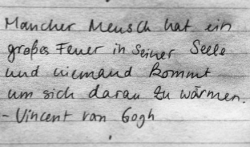 Mancher Mensch hat ein
großes Feuer in seiner Seele
und niemand kommt
um sich daran zu wärmen.
- Vincent van Gogh